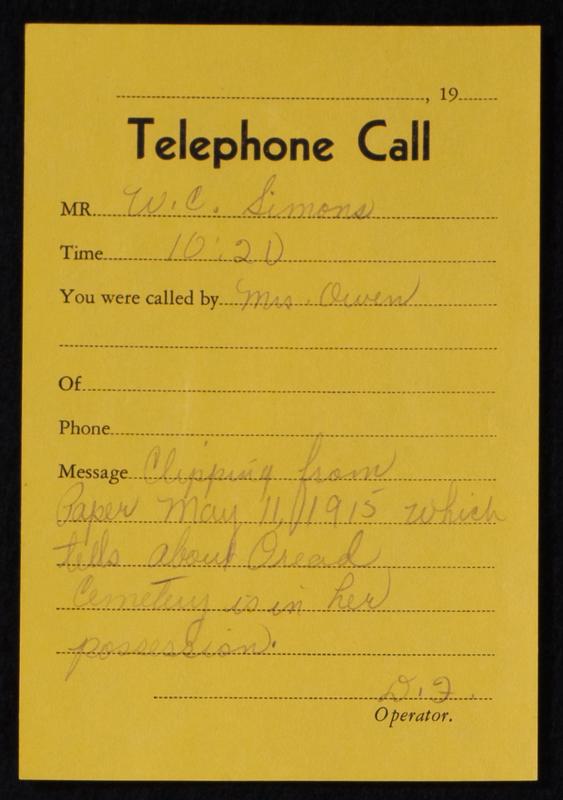 , 19
Telephone Call
MR. W.C. Simons
Time 10:20
You were called by Mrs. Owen
Of
Phone
Message Clipping from
Paper May 11, 1915 which
tells about Oread
Cemetery is in her
possession.
D.F.
Operator.